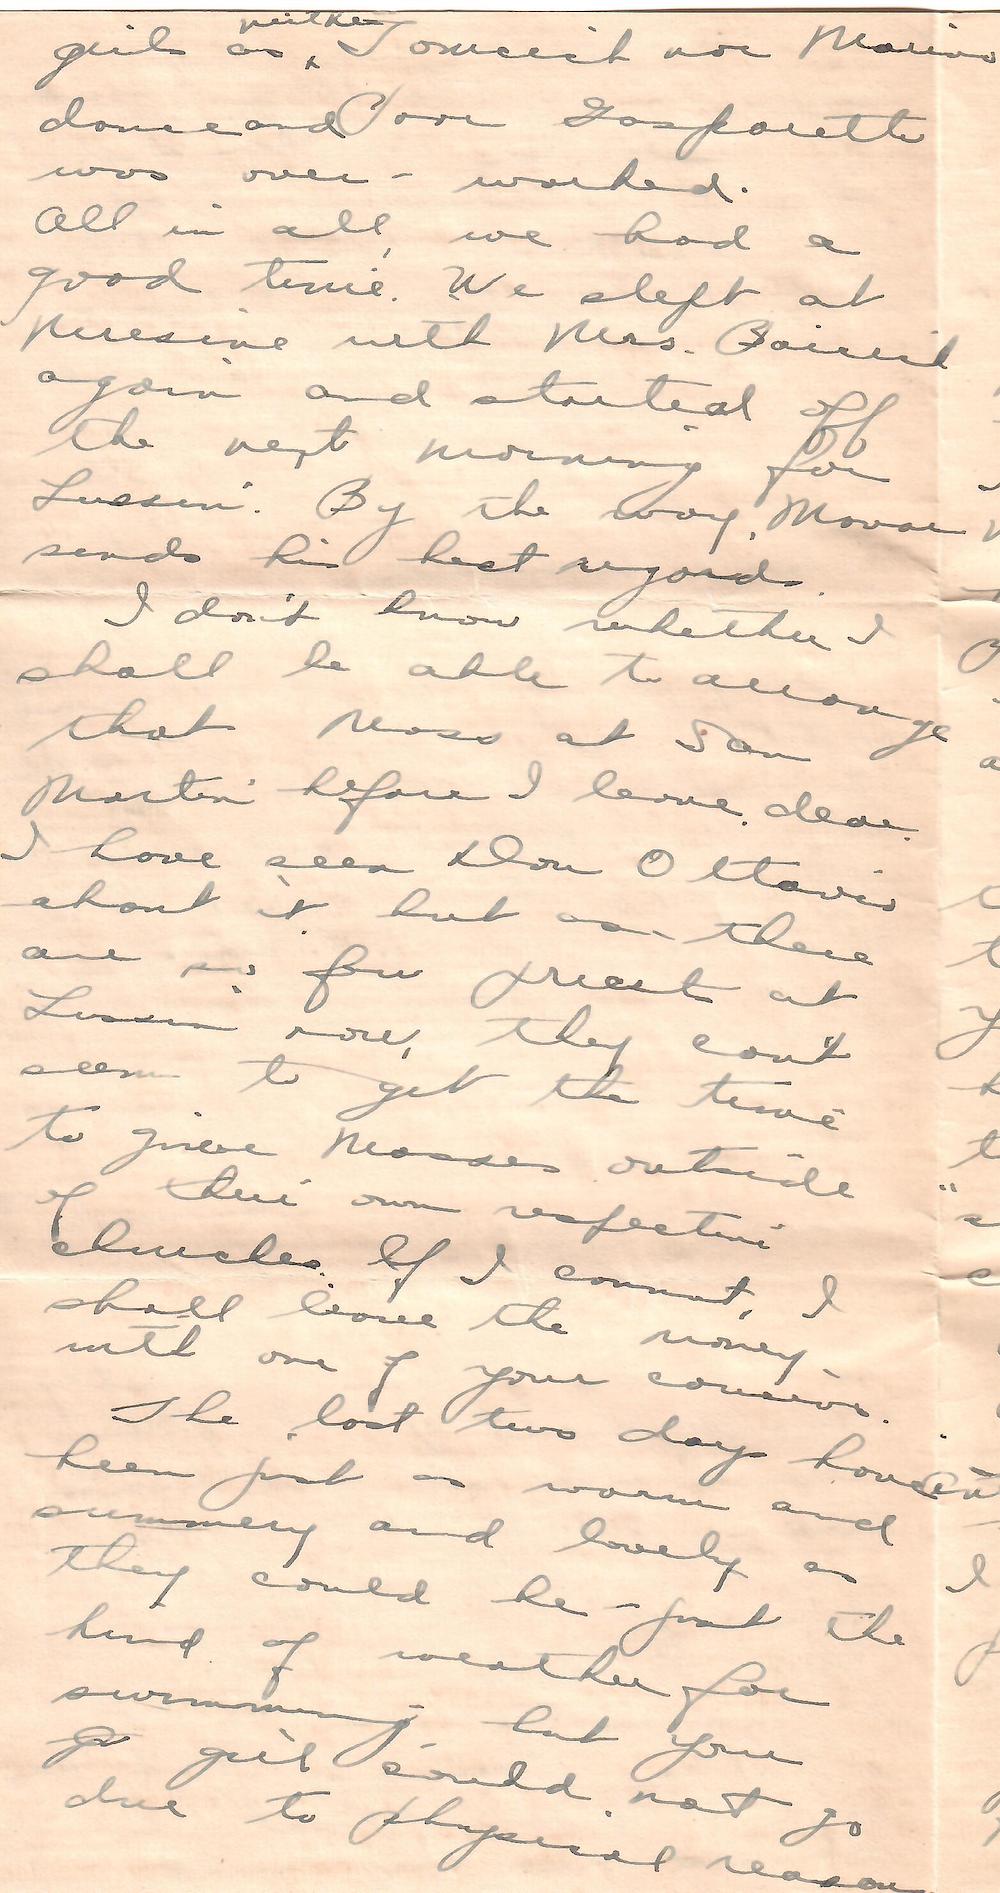 neither
girls as, Tomcich nor Marino
dance and Poor Gasparetto
was over-worked.
All in all, we had a
good time. We slept at
Neresine with Mrs.
again and started off
the next morning for
Lussin. By the way,
sends his best regards.
I don't know whether I
shall be able to arrange
that Mass at San
Martin before I leave, dear.
I have seen Don Ottavio
about it but as there
are so few priests at
Lussin now, they can't
seem to get the time
to give Masses outside
of their own respective
churches. If I cannot, I
shall leave the money
with one of your cousins.
The last two days have
been just as warm and
summery and lovely as
they could be - just the
kind of weather for
swimming but your
girl could not go
due to physical reason